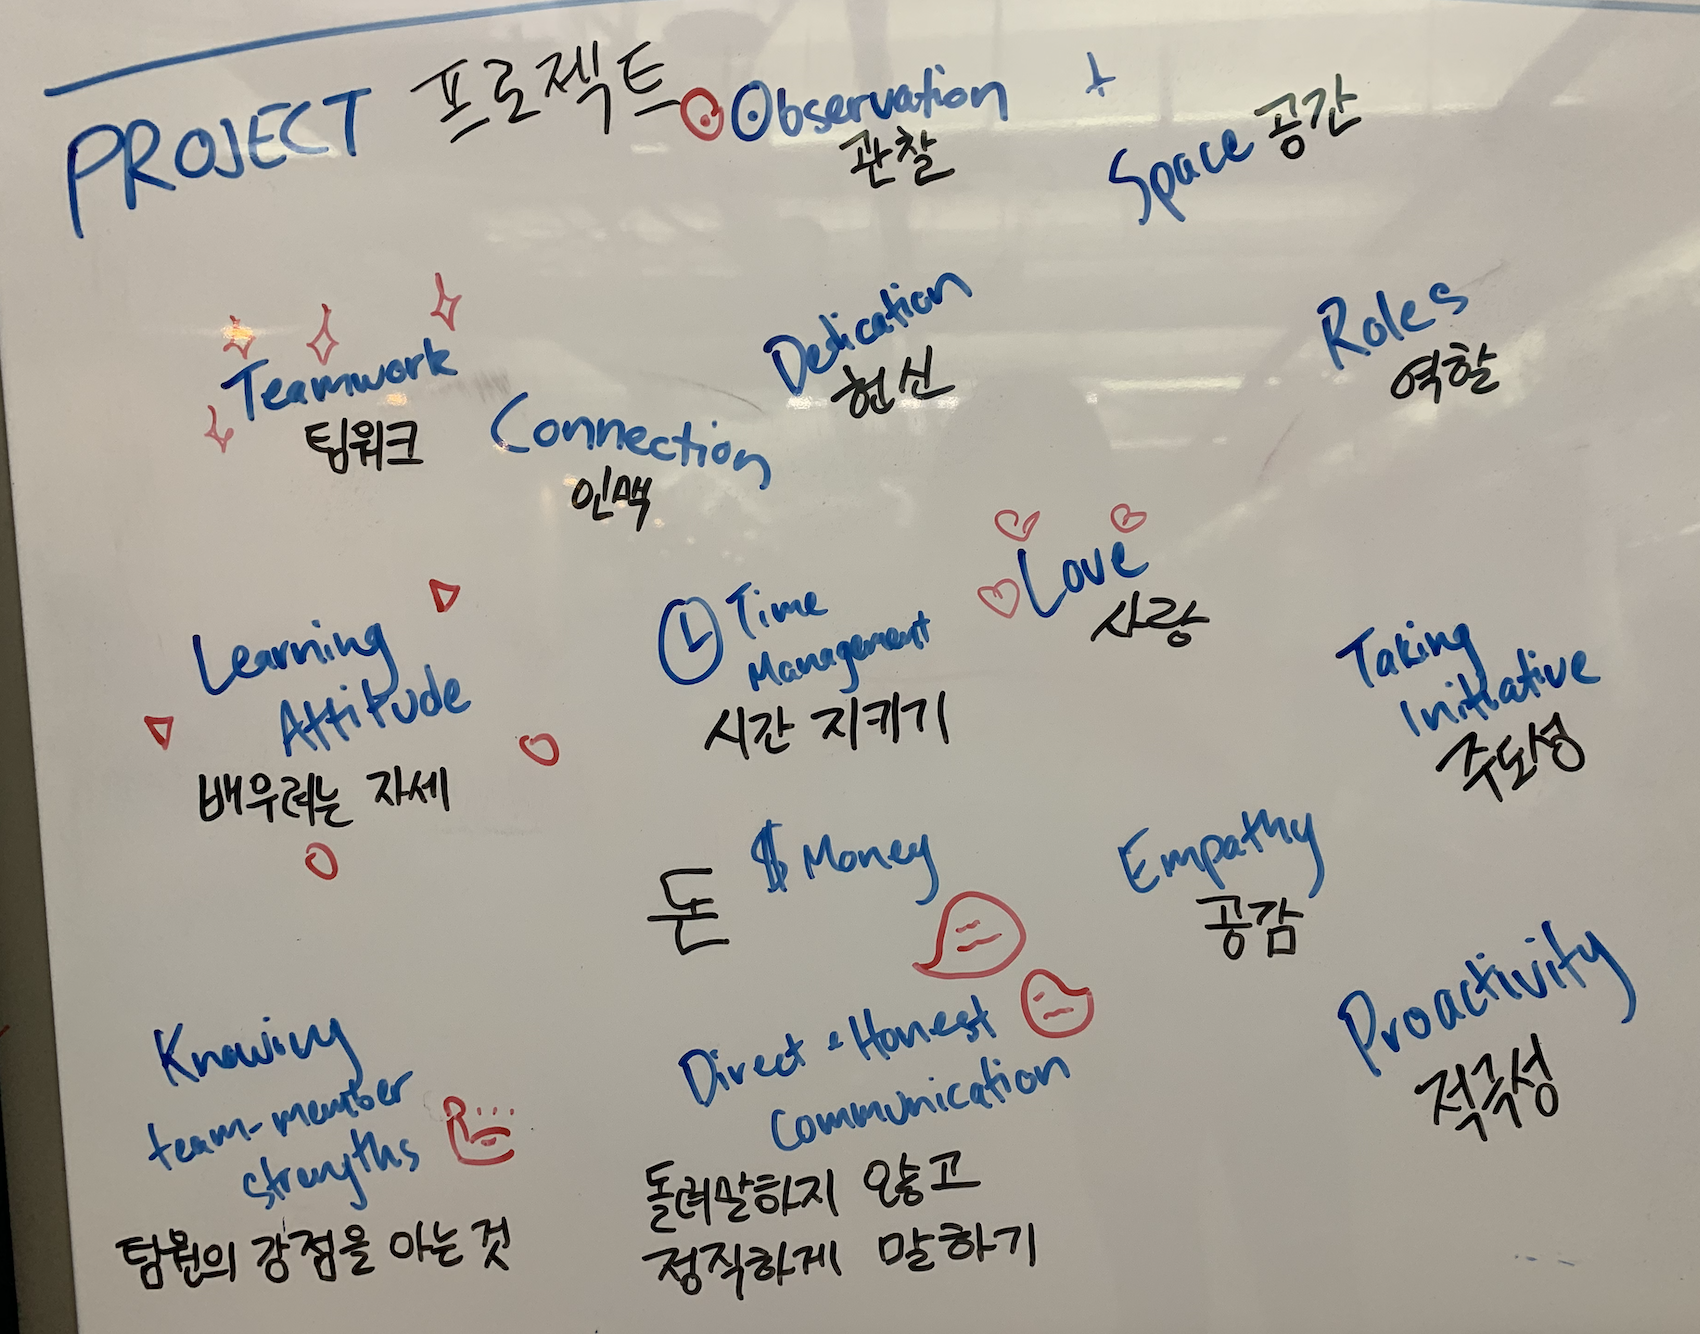 PROJECT 프로젝트
Observation
관찰
Space 공간
Teamwork
팀워크
Connection
인맥
Dedication
헌신
Roles
역할
Learning
Attitude
배우려는 자세
Time
Management
시간 지키기
Love
사랑
Taking
Initiative
주도성
돈 $ Money
Empathy
공감
Proactivity
적극성
Knowing
team-member
strengths
팀원의 강점을 아는 것
Direct & Honest
Communication
돌려말하지 않고
정직하게 말하기